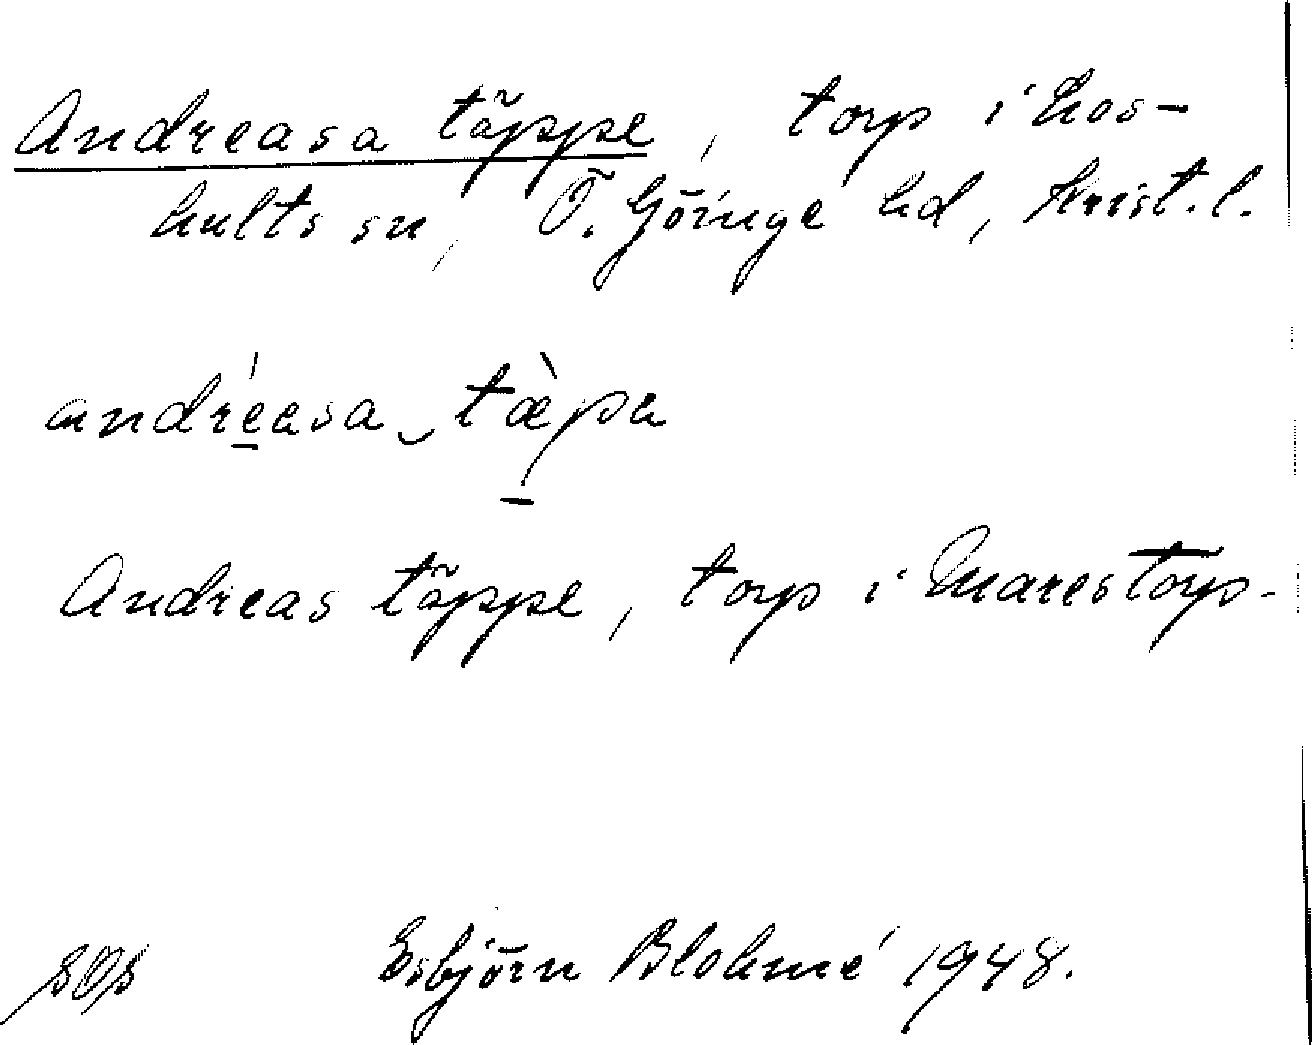 Andreasa täppe, torp i Loshults sn, Ö. Göinge hd, Krist. l.
andréasa‿tæ̀pa
Andreas täppe, torp i Marestorp.
Esbjörn Blohmé 1948.